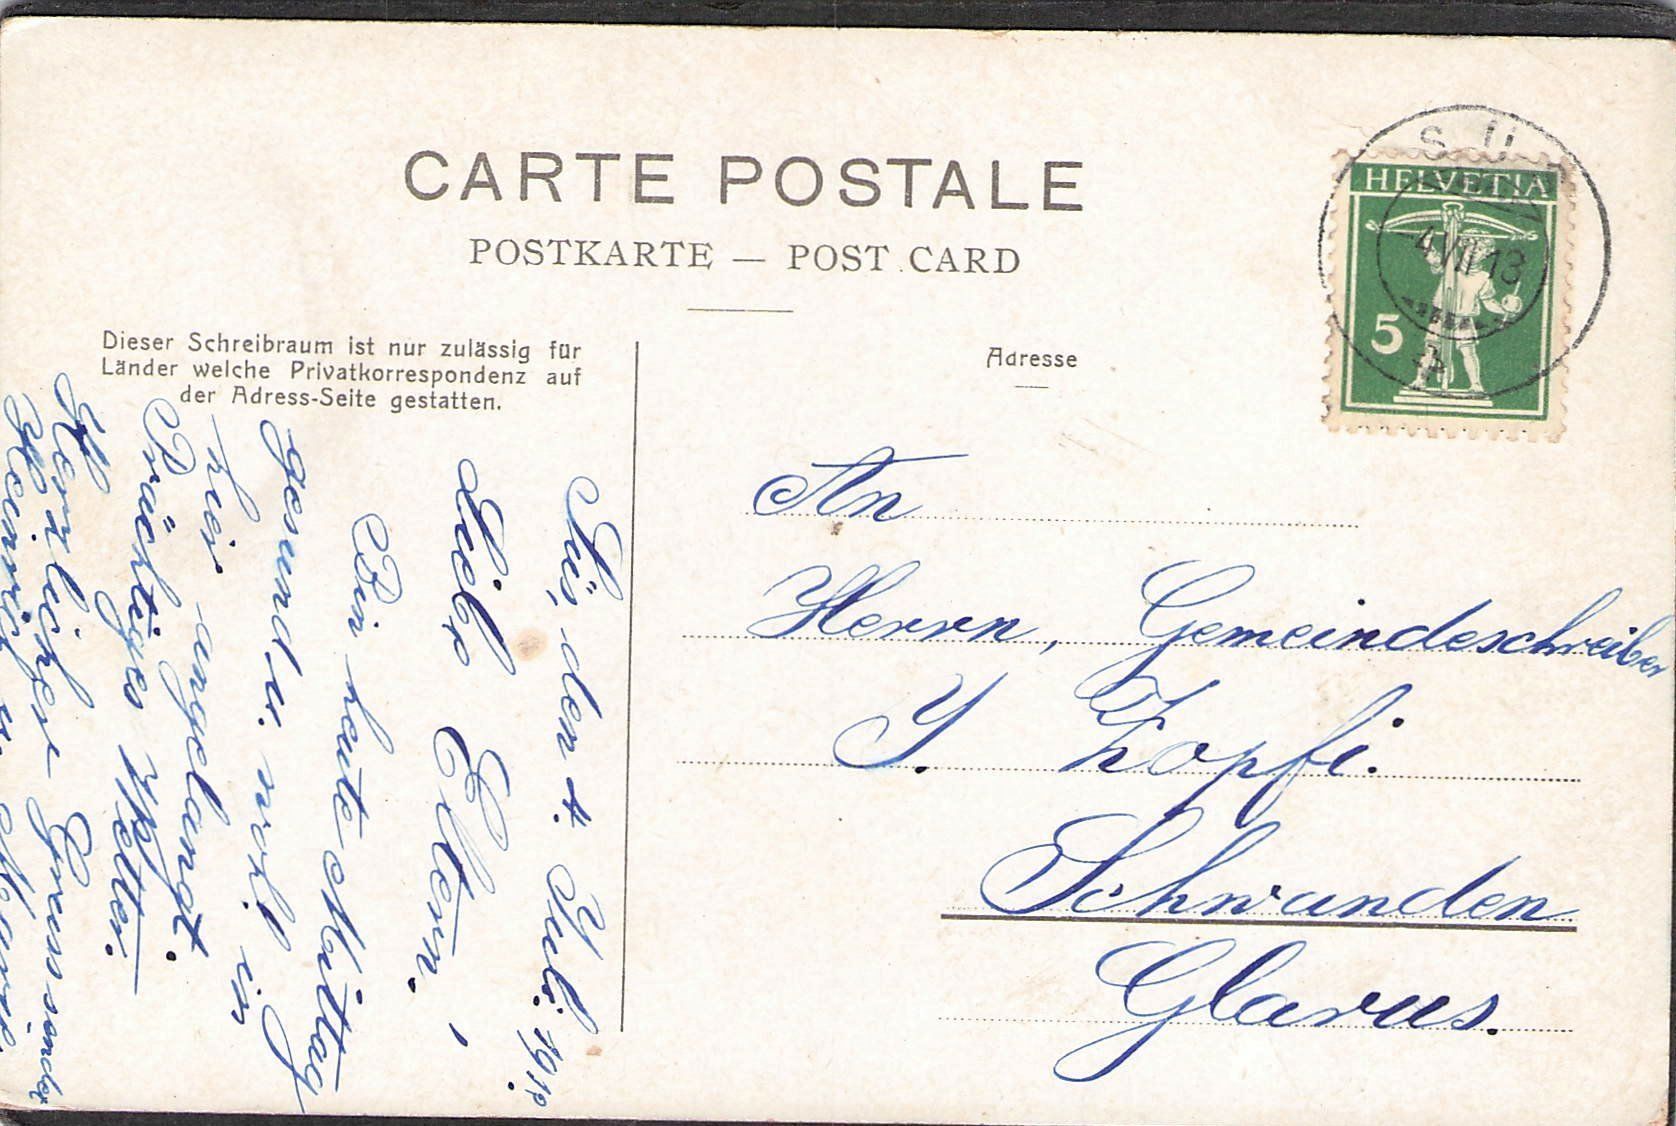 CARTE POSTALE
POSTKARTE — POST CARD
Dieser Schreibraum ist nur zulässig für
Länder welche Privatkorrespondenz auf
der Adress-Seite gestatten.
Adresse
SÜS
HELVETIA
4.VII.13
5
An
Herrn, Gemeindeschreiber
J. Zopfi.
Schwanden
Glarus.
Süs, den 4. Juli 19
Liebe Eltern!
Bin heute Mittag
gesund u. wohl in
hier angelangt.
Prächtiges Wetter.
Herzliche Grüsse sendet
Heinrich u. Marie